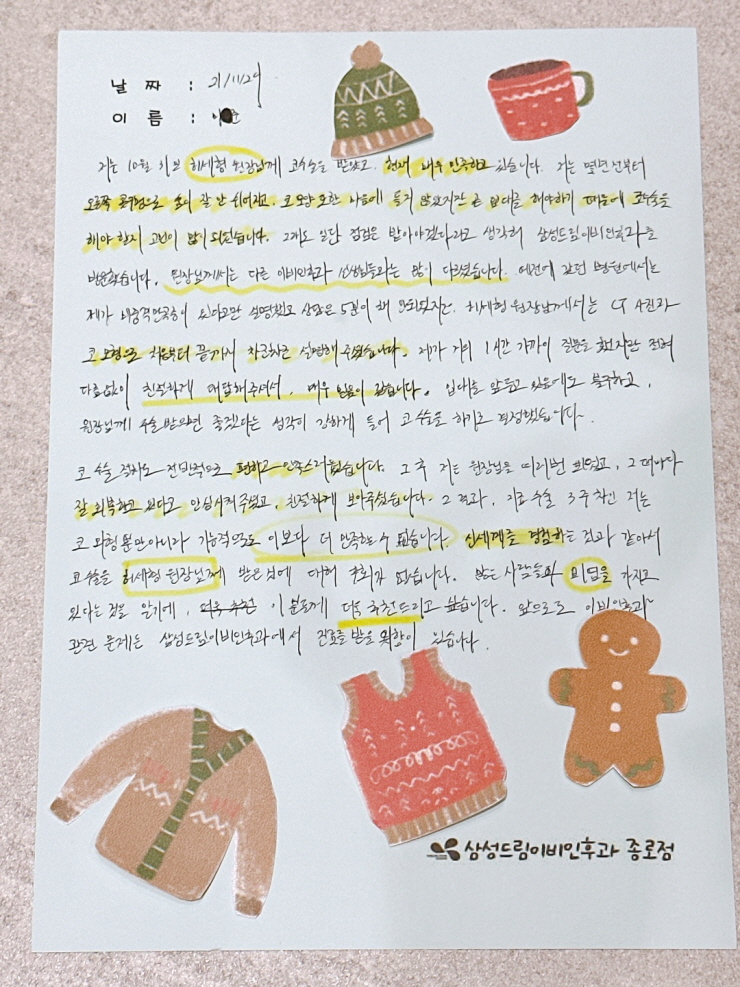 날 짜 : 21/11/29
이 름 : 이
저는 10월 31일 허세형 원장님께 코수술을 받았고, 현재 매우 만족하고 있습니다. 저는 몇년 전부터
오른쪽 콧구멍으로 숨이 잘 안 쉬어지고, 코 모양 또한 마음에 들지 않았지만 곧 입대를 해야하기 때문에 코수술을
해야 할지 고민이 많이 되었습니다. 그래도 일단 점검은 받아야겠다라고 생각해 삼성드림이비인후과를
방문했습니다. 원장님께서는 다른 이비인후과 선생님들과는 많이 다르셨습니다. 예전에 갔던 병원에서는
제가 비중격만곡증이 있다고만 설명했고 상담은 5분이 채 안되었지만, 허세형 원장님께서는 CT 사진과
코 모형으로 처음부터 끝까지 차근차근 설명해 주셨습니다. 제가 거의 1시간 가까이 질문을 했지만 전혀
다름없이 친절하게 대답해주셔서, 매우 믿음이 갔습니다. 입대를 앞두고 있음에도 불구하고,
원장님께 수술 받으면 좋겠다는 생각이 강하게 들어 코 수술을 하기로 결정했습니다.
코 수술 절차도 전반적으로 편하고 만족스러웠습니다. 그 후 저는 원장님을 여러번 뵈었고, 그 때마다
잘 회복하고 있다고 안심시켜 주셨고, 친절하게 보아주셨습니다. 그 결과, 지금 수술 3주 차인 저는
코 외형 뿐만아니라 기능적으로도 이보다 더 만족할 수 없습니다. 신세계를 경험하는 것과 같아서
코 수술을 허세형 원장님께 받은 것에 대해 후회가 없습니다. 많은 사람들이 고민을 가지고
있다는 것을 알기에, 더욱 추천 이 분들께 더욱 추천드리고 싶습니다. 앞으로도 이비인후과
관련 문제는 삼성드림이비인후과에서 진료를 받을 의향이 있습니다.
삼성드림이비인후과 종로점